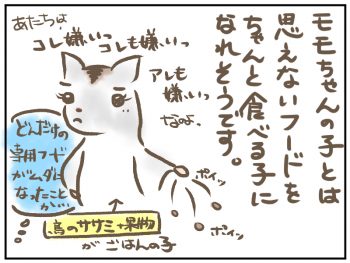 モモちゃんの子とは
思えないフードを
ちゃんと食べる子に
なれそうです。
あたちよ
コレ嫌いっ
コレも嫌いっ
アレも
嫌いっ
なのよ
ポイッ
ポイッ
どんだけの
専用フード
がムダに
なったことか…
鳥のササミ+果物
がごはんの子